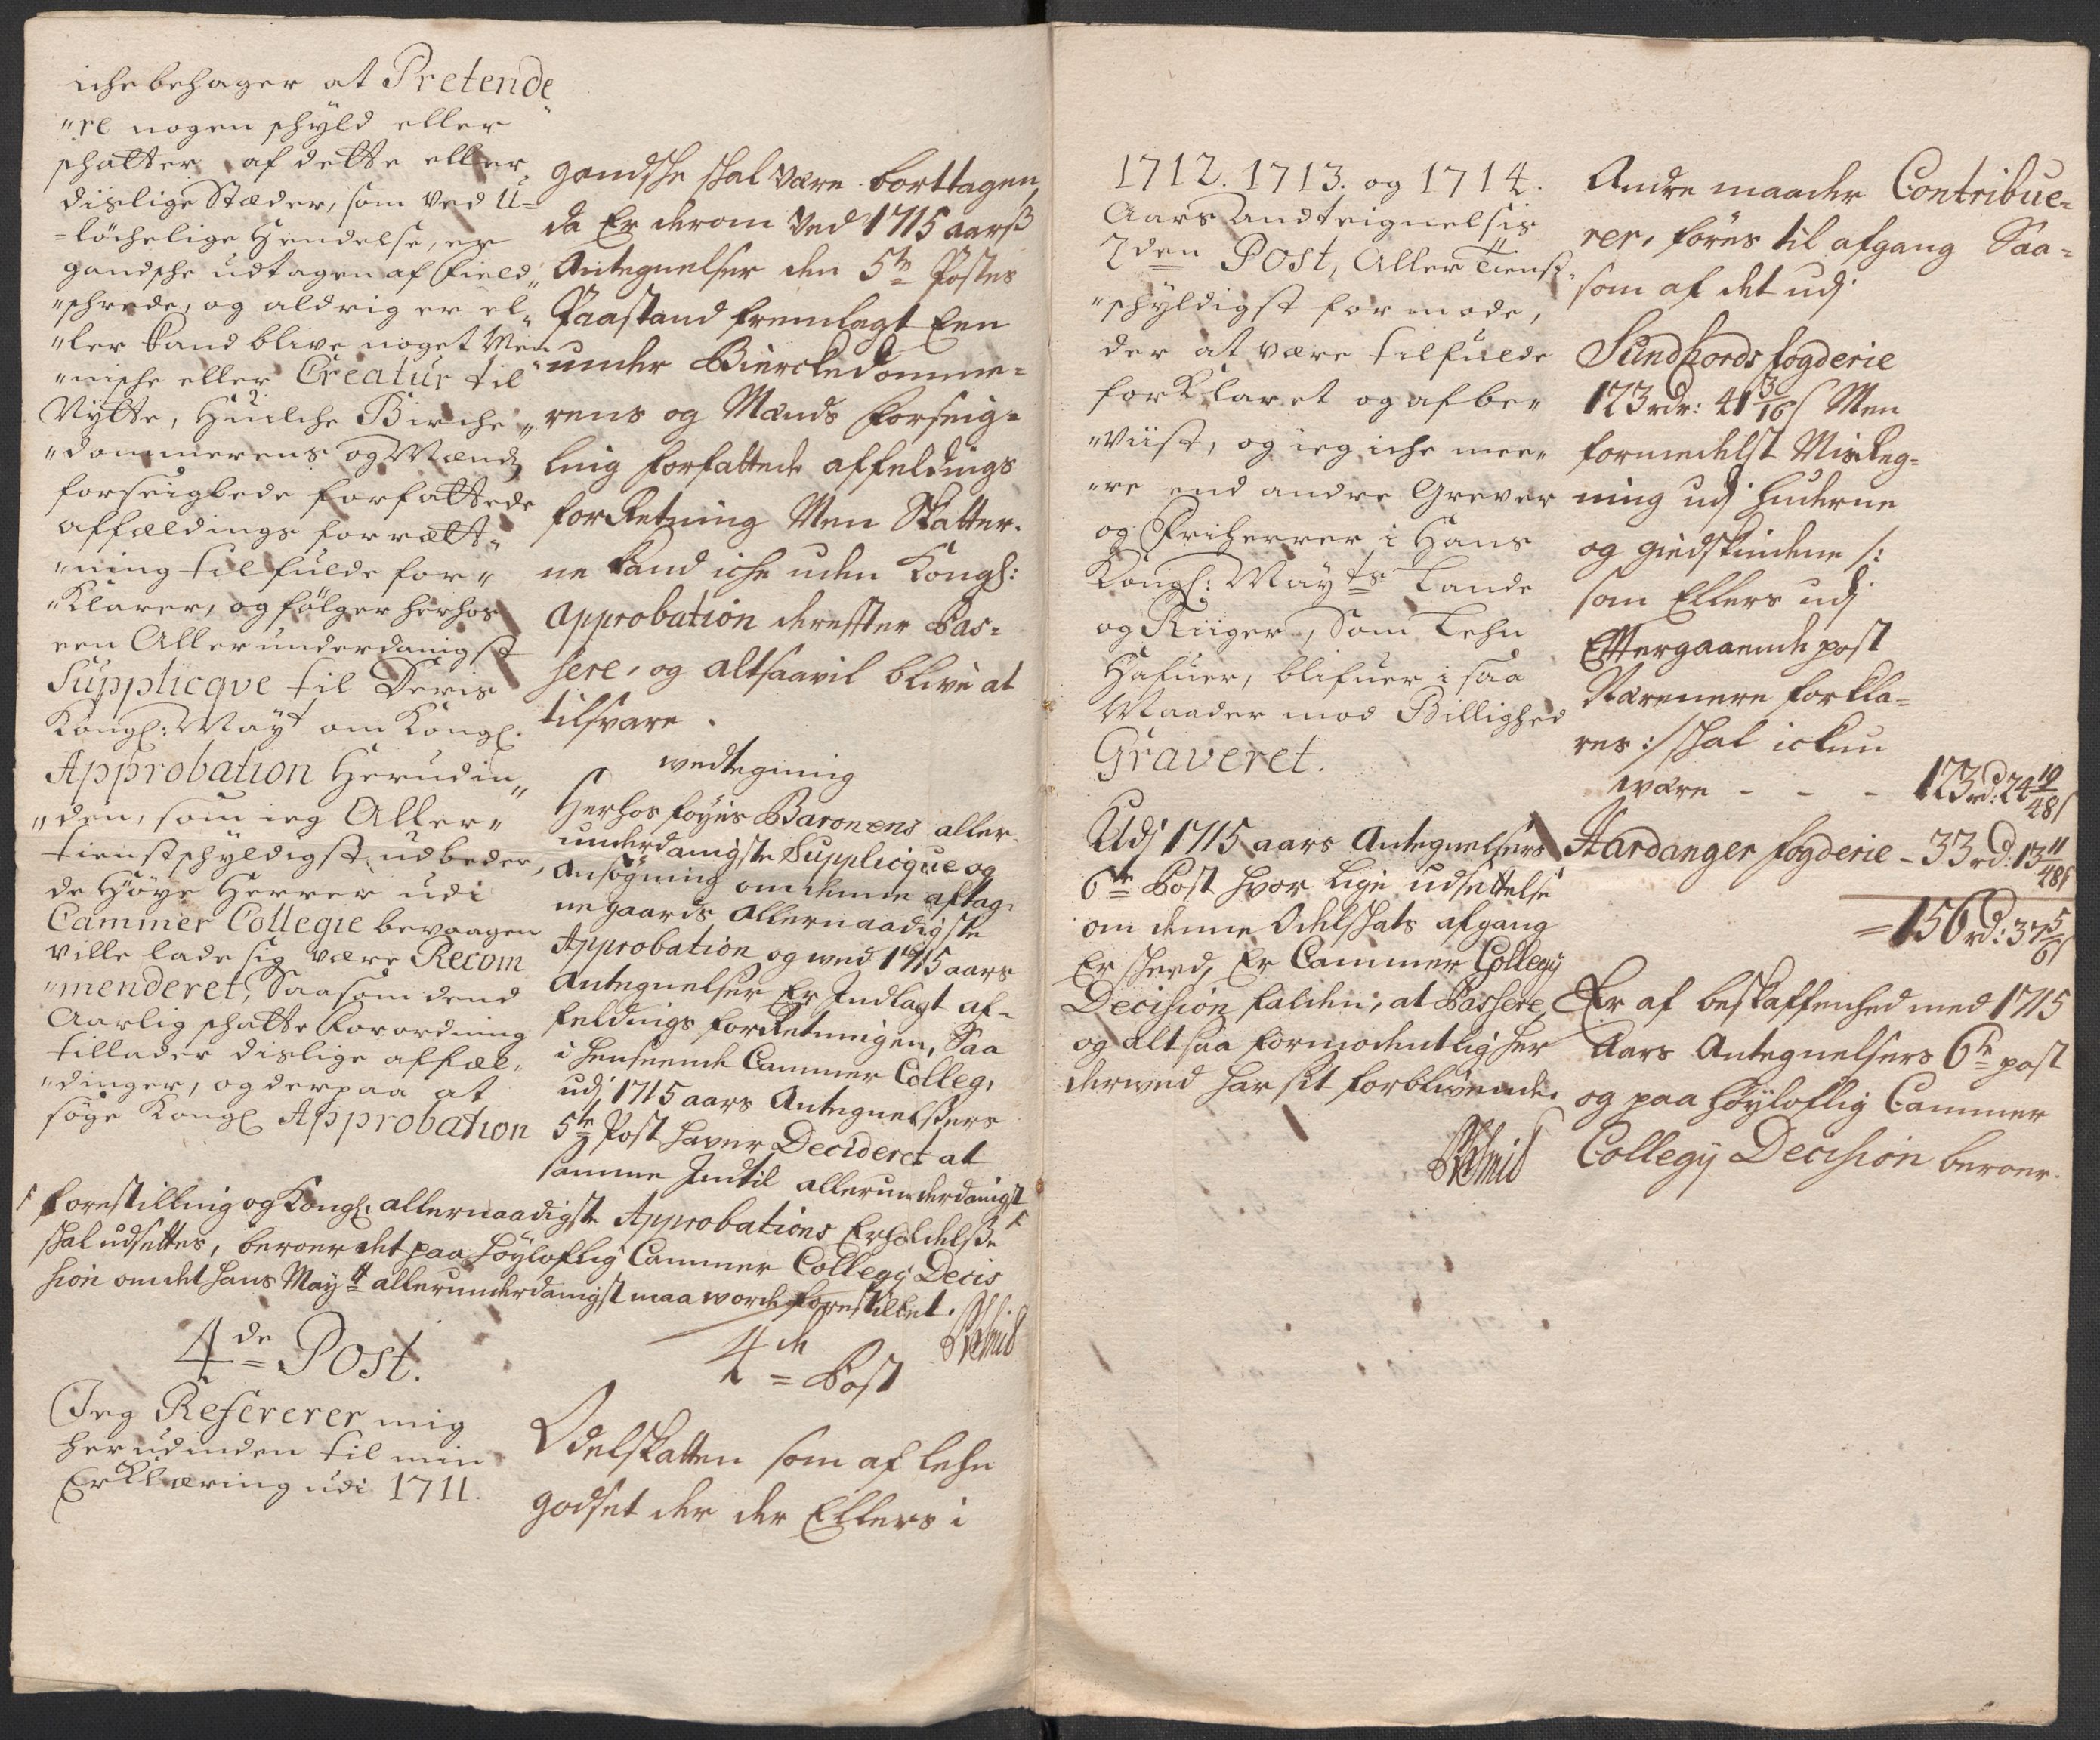 iche behager at Pretende
"re nogen schyld eller
schatter af dette eller
dislige Stæder, som ved U=
=löchelige Hendelse, er
gandsche udtagen af Field„
"schrede, og aldrig er el„
"ler kand blive noget Men„
"nische eller Creatur til
Nÿtte, Huilche Birche„
"dommerens og Mænds
forseiglede forfattede
affældings forrætt„
"ning til fulde for„
"Klarer, og fölger herhos
een Allerunderdanigst
Supplicqve til Deris
Kongl: Mayt om Kongl.
Approbation Herudin„
"den, som ieg Aller„
tienstschÿldigst udbeder,
de Höÿe Herrer udi
Cammer Collegie bevaagen
ville lade sig være Recom
"menderet, Saasom dend
Aarlig schatte Forordning
tillader dislige affæl„
"dinger, og derpaa at
söge Kongl Approbation
gandsche skal være borttagen,
da Er derom Ved 1715 aarß
Antegnelser den 5te Postes
Paastand fremlagt Een
under Bierckedomme=
rens og Mænds forseig=
ling forfattede affeldings
forRetning Men Skatter=
ne kand iche uden Kongl:
approbation derefter Pas=
sere, og altsaa vil blive at
tilsvare.
wedtegning
Herhos föyes Baronens aller
underdanigste Supplicqve og
Ansögning om denne aftag=
ne gaards Allernaadigste
Approbation og wed 1715 aars
Antegnelser Er Indlagt af=
feldings forRetningen, Saa
i henseende Cammer Colleg,
udj 1715 aars Antegnelsers
5te Post haver Decideret at
samme Indtil allerunderdanigst
forestilling og Kongl. allernaadigste Approbations Erholdelse
skal udsettes, beroer det paa höyloflig Cammer Collegij Decis
sion om det hans Maytt allerunderdanigst maa worde forestillet.
4de Post.
Jeg Refererer mig
herudinden til min
Erklæring udi 1711.
4de Post
Odelskatten som af lehn
godset der der Ellers i
1712. 1713. og 1714.
Aars Andteignelsis
7den Post, Aller Tienst„
"schÿldigst formode,
der at være tilfulde
forklaret og afbe„
"viist, og ieg iche mee„
"re end andre Grever
og Friherrer i Hans
Kongl: Mayts Lande
og Riiger, Som Lehn
Hafuer, blifuer i saa
Maader mod Billighed
Graveret.
Udj 1715 aars Antegnelsers
6te Post hvor lige udsettelse
om denne Odelskats afgang
Er skeed, Er Cammer Collegij
Decision falden, at Passere,
og altsaa formodentlig her
derwed har sit forblivende.
Andre maader Contribue=
rer, föres til afgang Saa=
som af det udj
Sundfiords fogderie
123 rdr: 41 3/16 s Men
formedelst MisReg=
ning udj huderne
og giedskindene /:
som Ellers udj
Effergaaende post
Nærmere forkla=
res :/ skal ickun
være - - - 123 rd: 24 19/48 s
Hardanger fogderie - 33 rd: 13 11/48 s
= 156 rd: 37 5/8 s
Er af beskaffenhed med 1715
Aars Antegnelsers 6te post
og paa höyloflig Cammer
Collegij Decision beroer.